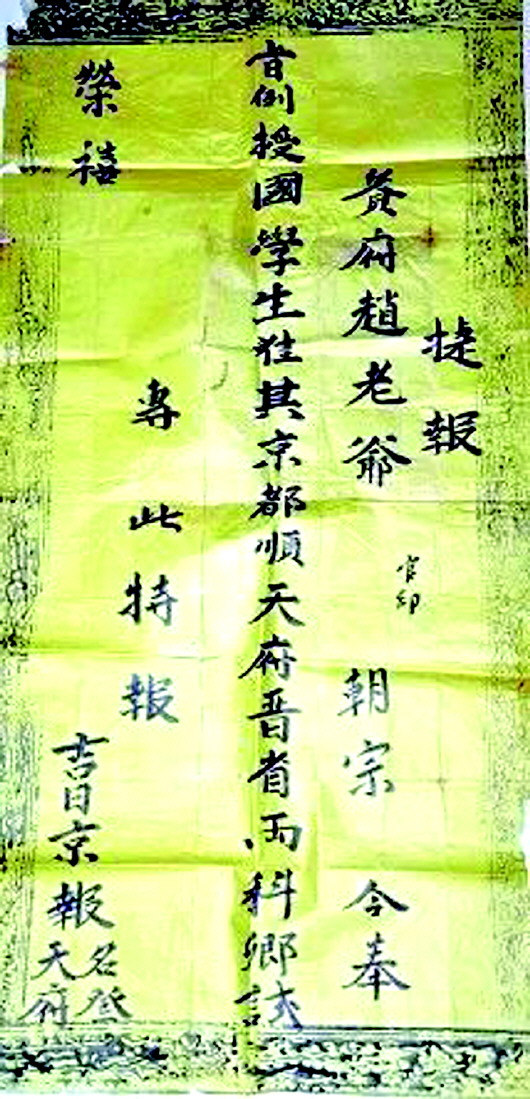 捷報
貴府趙老爺 官印 朝宗 今奉
旨例授國學生准其京都順天府晋省両科鄉試
專此特報
榮禧
吉日京報
名登
天府